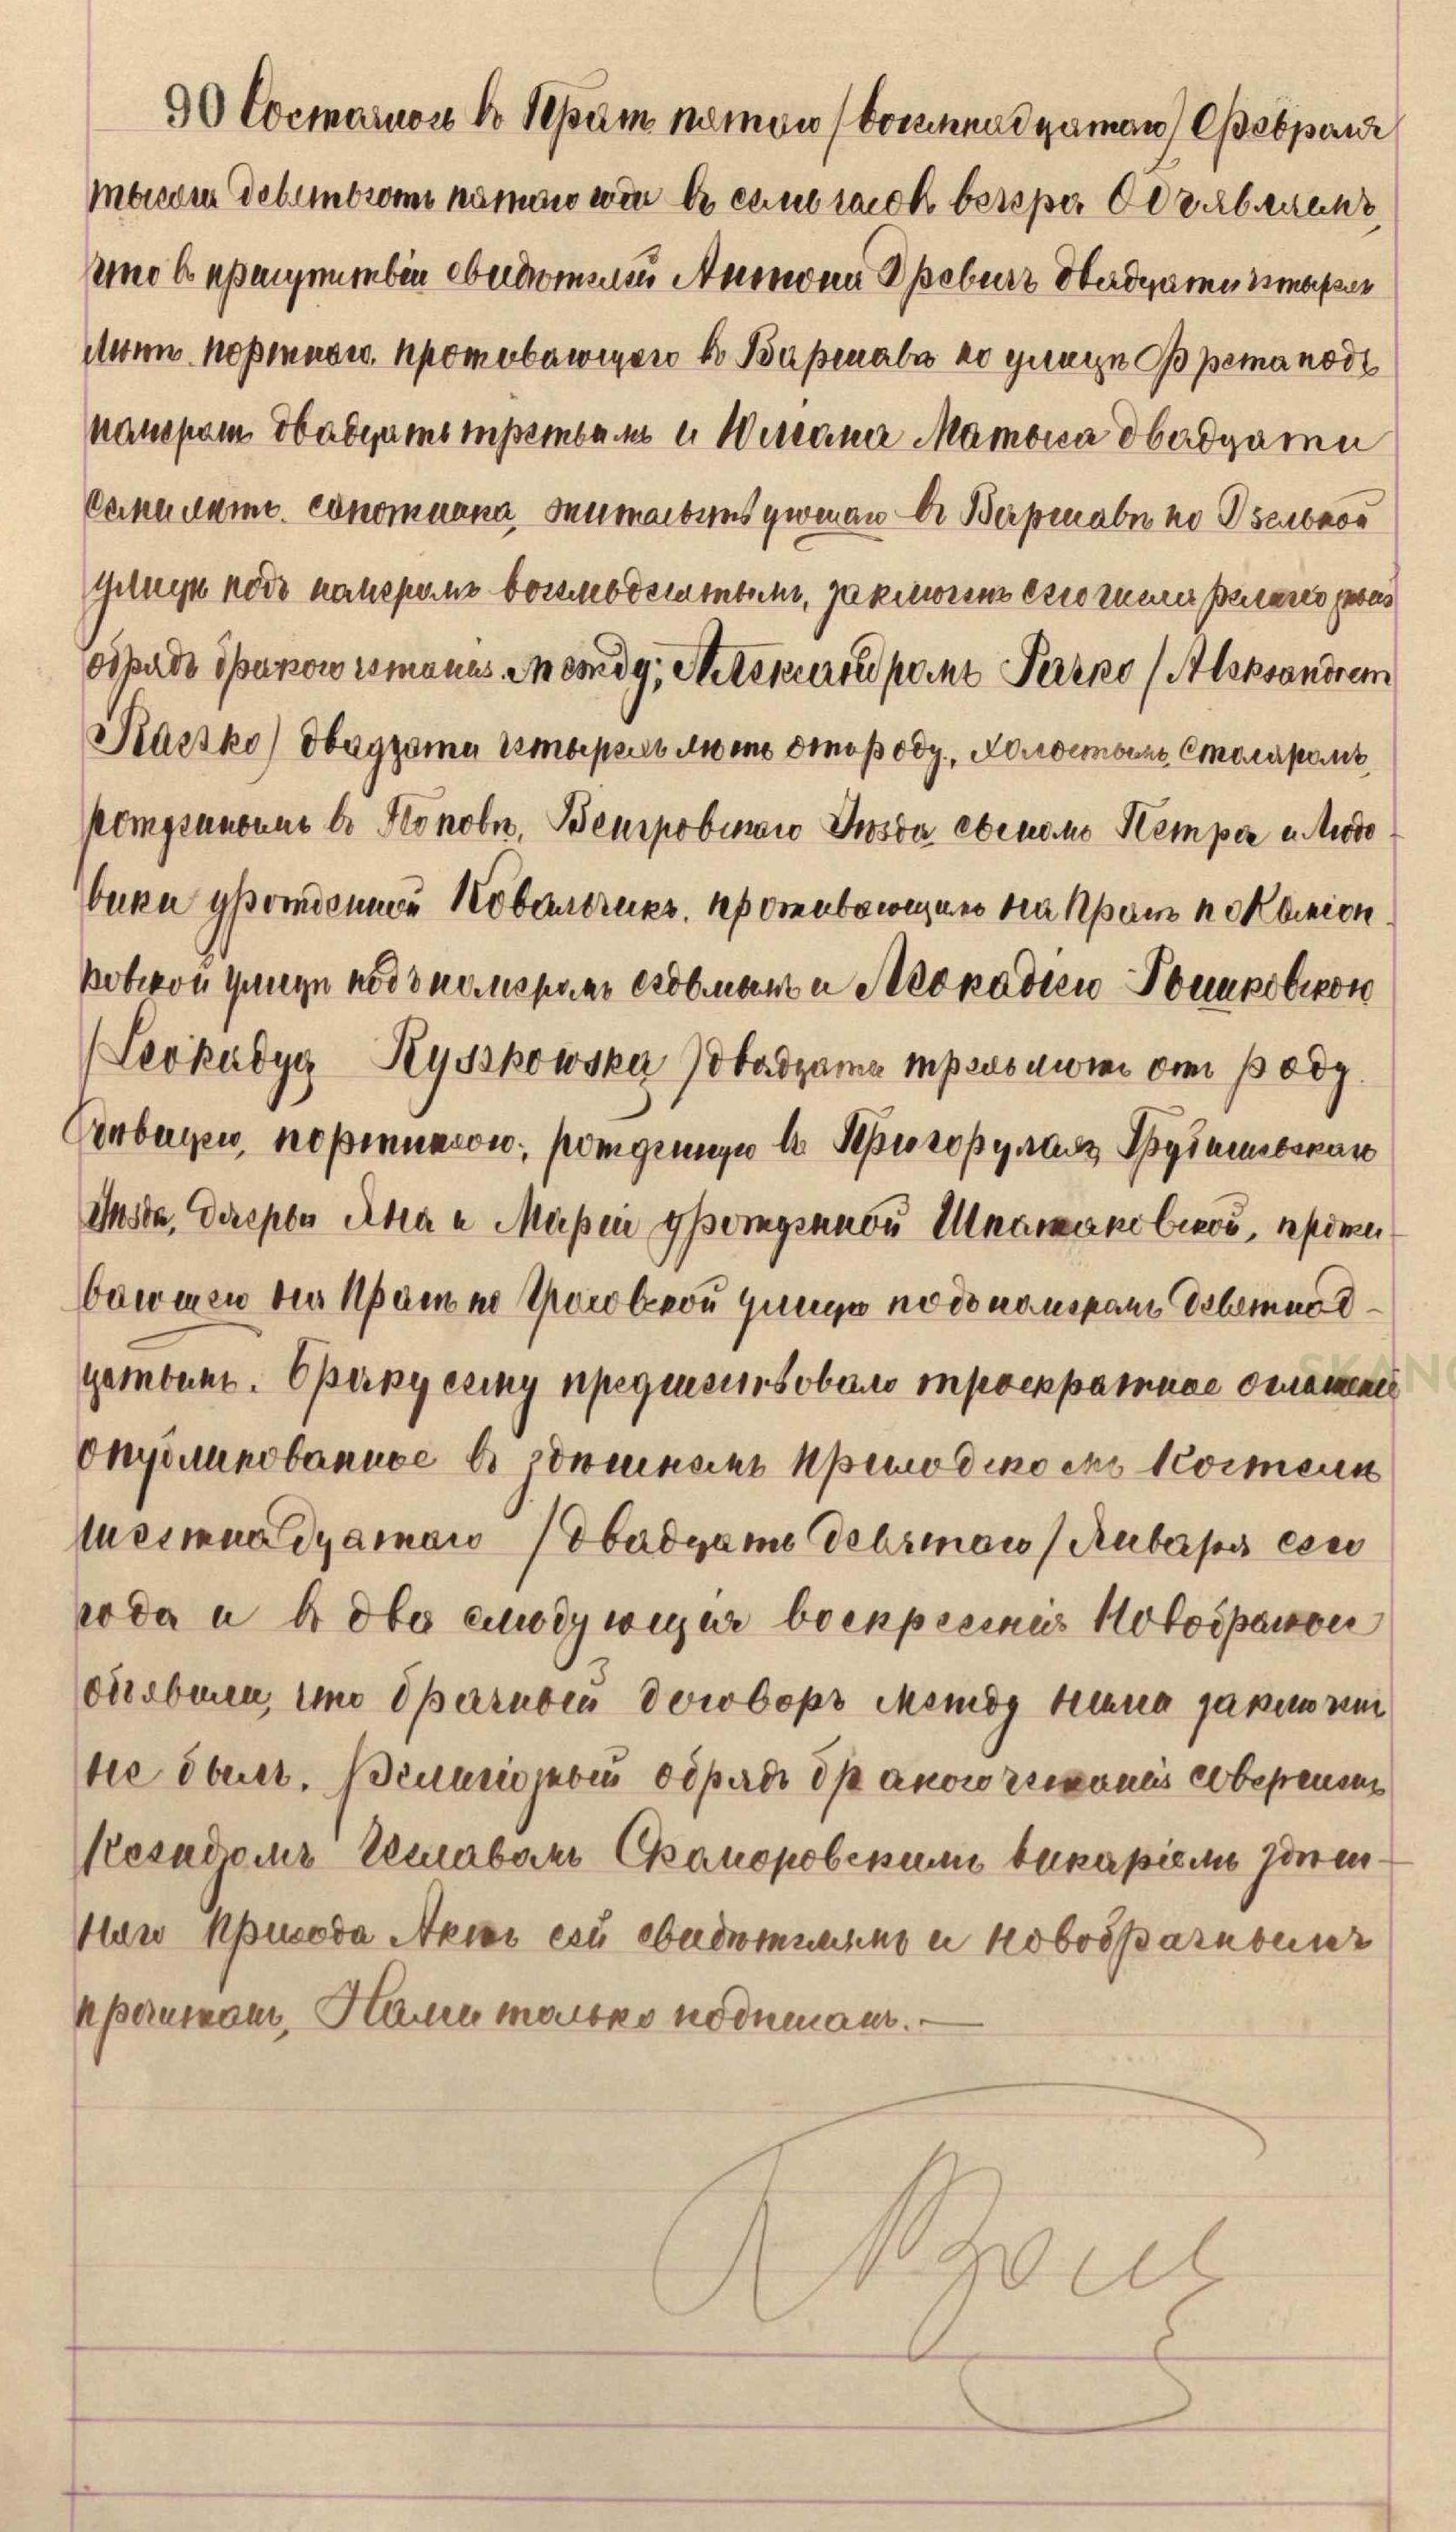 90 Состоялось въ Прагѣ пятаго /восемнадцатаго/ Февраля
тысяча девятьсотъ пятаго года въ семь часовъ вечера Объявляемъ,
что въ присутствіи свидѣтелей Антона Древичъ двадцати четырехъ
лѣтъ портнаго, проживающаго въ Варшавѣ по улицѣ Фрета подъ
номеромъ двадцать третьимъ и Юліана Матыса двадцати
семи лѣтъ, сапожника, жительствующаго въ Варшавѣ по Дзельной
улицѣ подъ номеромъ восемьдесятымъ, заключенъ сего числа религіозный
обрядъ бракосочетанія между: Александромъ Рачко /Aleksandrem
Raczko/ двадцати четырехъ лѣтъ отъ роду, холостымъ, столяромъ,
рожденнымъ въ Поповѣ, Венгровскаго Уѣзда, сыномъ Петра и Людо
вики урожденной Ковальчикъ, проживающимъ на Прагѣ по Каміон
ковской улицѣ подъ номеромъ седьмымъ и Леокадіею Рышковскою
/Leokadyą Ryszkowską/ двадцати трехъ лѣтъ отъ роду
дѣвицею, портнихою, рожденную въ Пригорулахъ, Грубешовскаго
Уѣзда, дочерью Яна и Маріи урожденной Шпатаковской, прожи-
вающею на Прагѣ по Гроховской улицѣ подъ номеромъ девятнад-
цатымъ. Браку сему предшествовало троекратное оглашеніе
опубликованное въ здѣшнемъ Приходскомъ Костелѣ
шестнадцатаго /двадцать девятаго/ Января сего
года и въ два слѣдующія воскресенія Новобрачные
объявили, что брачный договоръ между ними заключенъ
не былъ. Религіозный обрядъ бракосочетанія совершенъ
Ксендзомъ Чеславомъ Скаморовскимъ викаріемъ здѣш-
няго прихода Актъ сей свидѣтелямъ и новобрачнымъ
прочитанъ, Нами только подписанъ. —